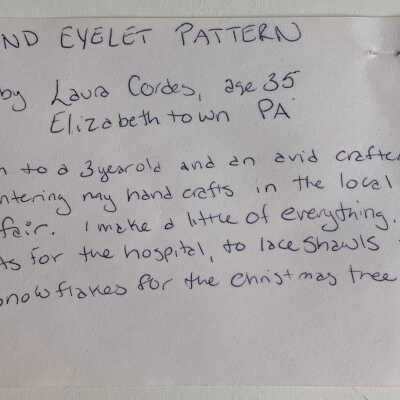 ND EYELET PATTERN
by Laura Cordes, age 35
Elizabethtown PA
to a 3 year old and an avid crafte
ntering my hand crafts in the local
fair. I make a little of everything.
ts for the hospital, to lace shawls
snowflakes for the christmas tree